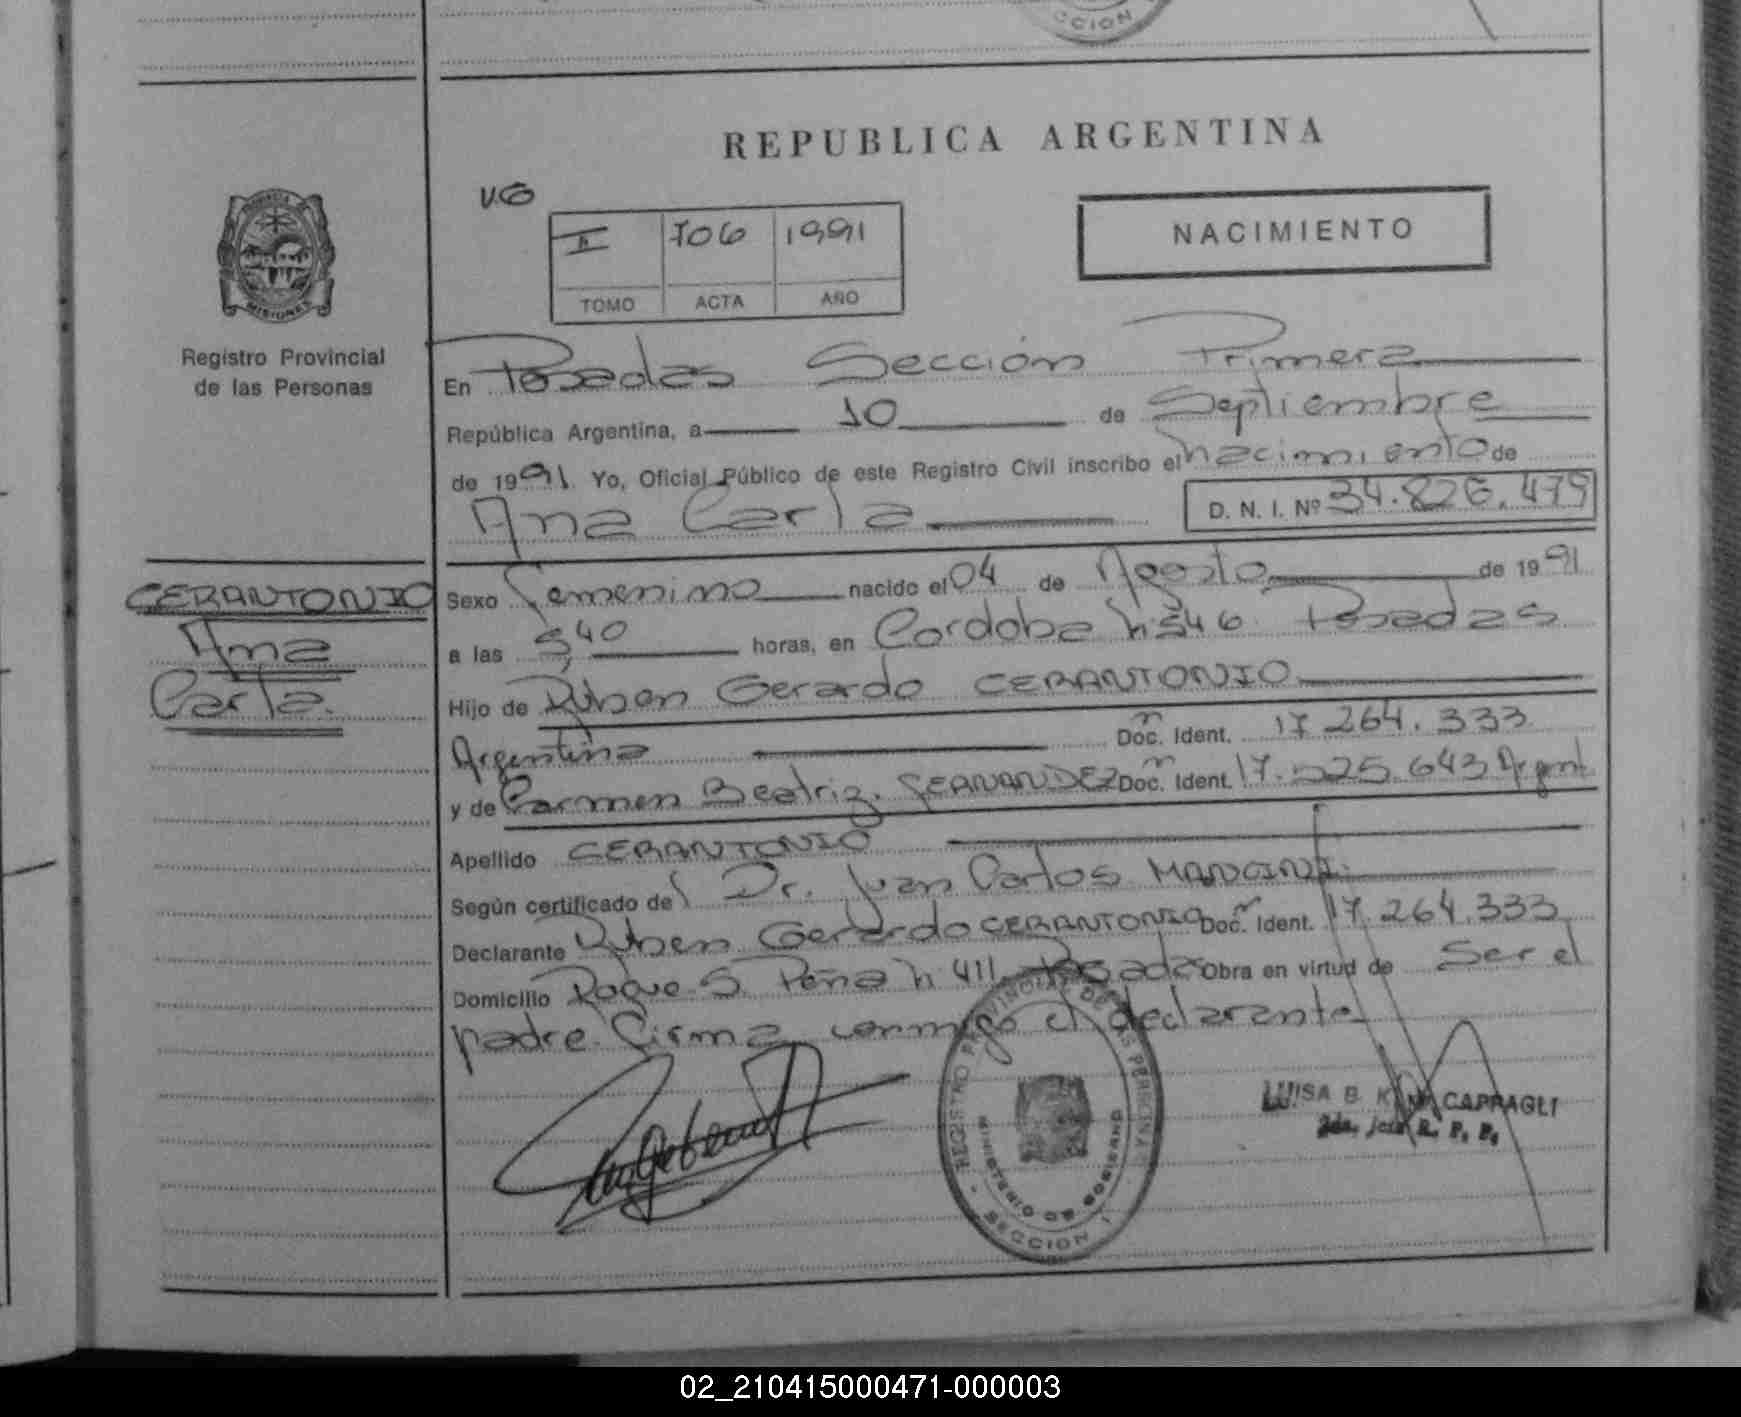 CCION
REPUBLICA ARGENTINA
VG
II 706 1991
TOMO ACTA AÑO
NACIMIENTO
MISIONES
Registro Provincial
de las Personas
En Posadas Sección Primera
República Argentina, a 10 de Septiembre
de 1991. Yo, Oficial Público de este Registro Civil inscribo el nacimiento de
Ana Carla D. N. I. Nº 34.826.479
CERANTONIO
Ana
Carla.
Sexo Femenino nacido el 04 de Agosto de 1991
a las 9,40 horas, en Cordoba n 546 Posadas
Hijo de Ruben Gerardo CERANTONIO
Argentina Doc. Ident. 17 264.333
y de Carmen Beatriz FERNANDEZ Doc. Ident. 17.525.643 Argent.
Apellido CERANTONIO
Según certificado del Dr. Juan Carlos MANCINI
Declarante Ruben Gerardo CERANTONIO Doc. Ident. 17.264.333
Domicilio Roque S. Peña n 411 Posadas Obra en virtud de Ser el
padre. Firma conmigo el declarante
REGISTRO PROVINCIAL DE LAS PERSONAS
MINISTERIO DE GOBIERNO
SECCION 1
LUISA B. CAPPAGLI
2da. Jefa R. P. P.
02_210415000471-000003